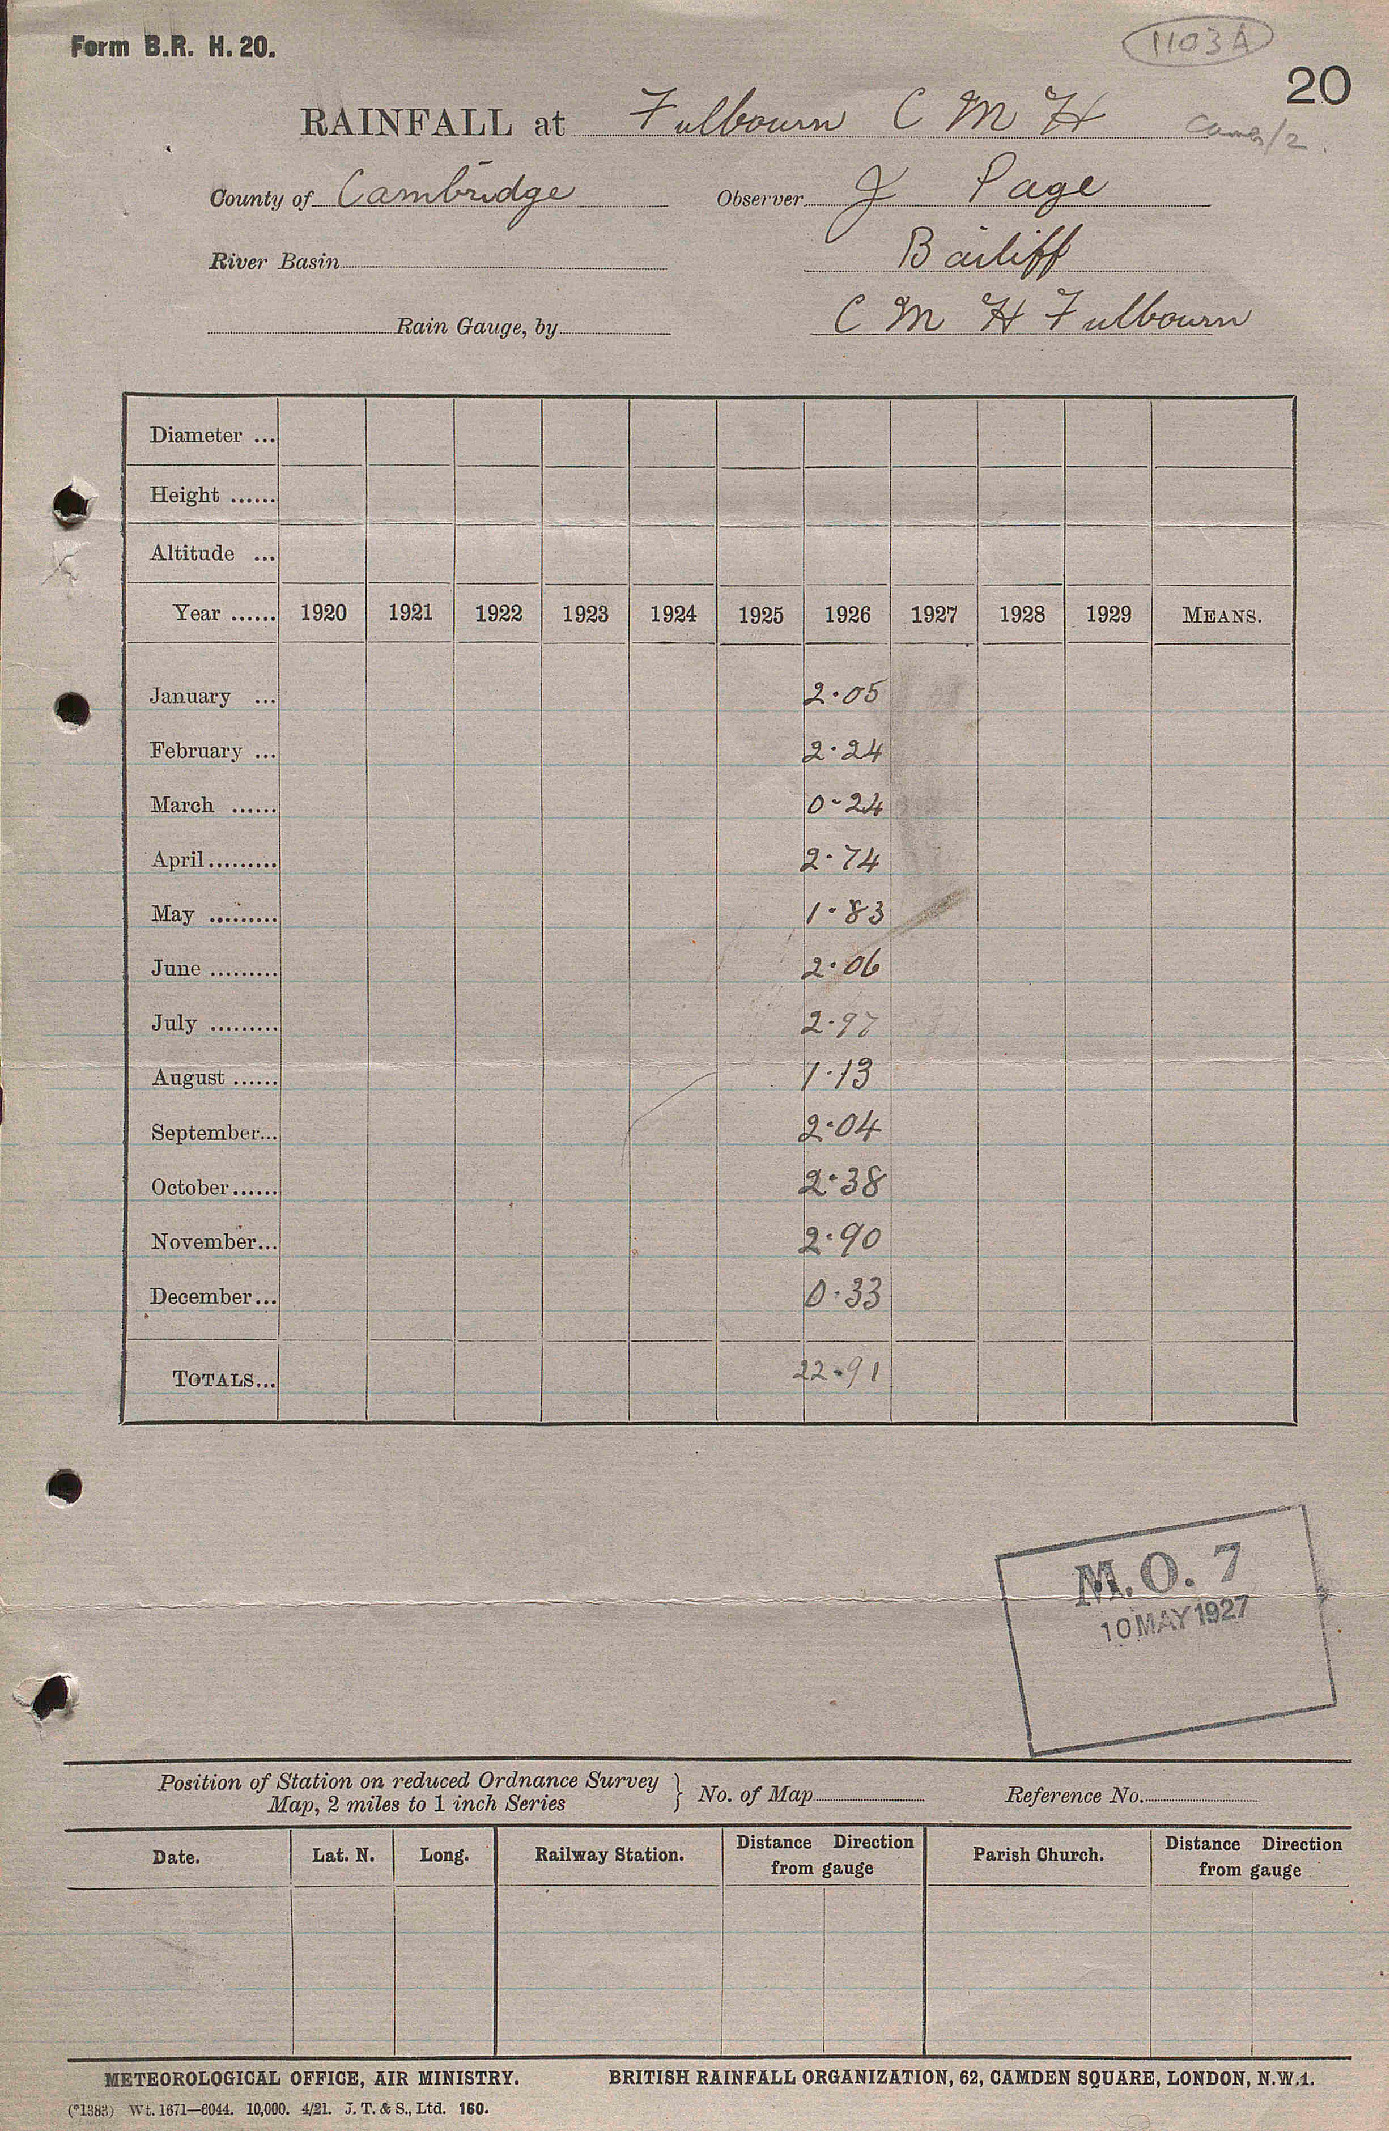 Form B.R. H. 20.
1103A
20
RAINFALL at Fulbourn C M H
Cambs/2.
County of Cambridge Observer J Page
River Basin Bailiff
Rain Gauge, by C M H Fulbourn
Diameter ...
Height ......
Altitude ...
Year ...... 1920 1921 1922 1923 1924 1925 1926 1927 1928 1929 MEANS.
January ... 2.05
February ... 2.24
March ...... 0.24
April......... 2.74
May ......... 1.83
June ......... 2.06
July ......... 2.97
August ...... 1.13
September... 2.04
October...... 2.38
November... 2.90
December... 0.33
TOTALS... 22.91
M.O. 7
10 MAY 1927
Position of Station on reduced Ordnance Survey
Map, 2 miles to 1 inch Series } No. of Map Reference No.
Date. Lat. N. Long. Railway Station. Distance Direction from gauge Parish Church. Distance Direction from gauge
METEOROLOGICAL OFFICE, AIR MINISTRY. BRITISH RAINFALL ORGANIZATION, 62, CAMDEN SQUARE, LONDON, N.W.1.
(*1383) Wt. 1671—6044. 10,000. 4/21. J. T. & S., Ltd. 160.